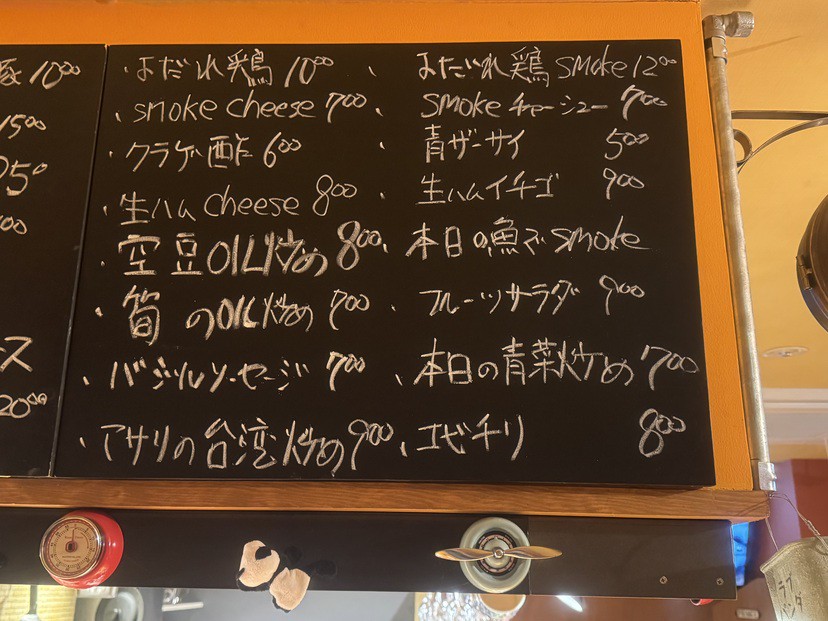 豚1000
1500
250
00
ース
2000
・よだれ鶏 1000
・smoke cheese 700
・クラゲ酢 600
・生ハム cheese 800
・空豆OIL炒め 800
・筍のOIL炒め 700
・バジルソーセージ 700
・アサリの台湾炒め 900
・よだれ鶏 smoke 1200
・smoke チャーシュー 700
・青ザーサイ 500
・生ハムイチゴ 900
・本日の魚で smoke
・フルーツサラダ 900
・本日の青菜炒め 700
・エビチリ 800